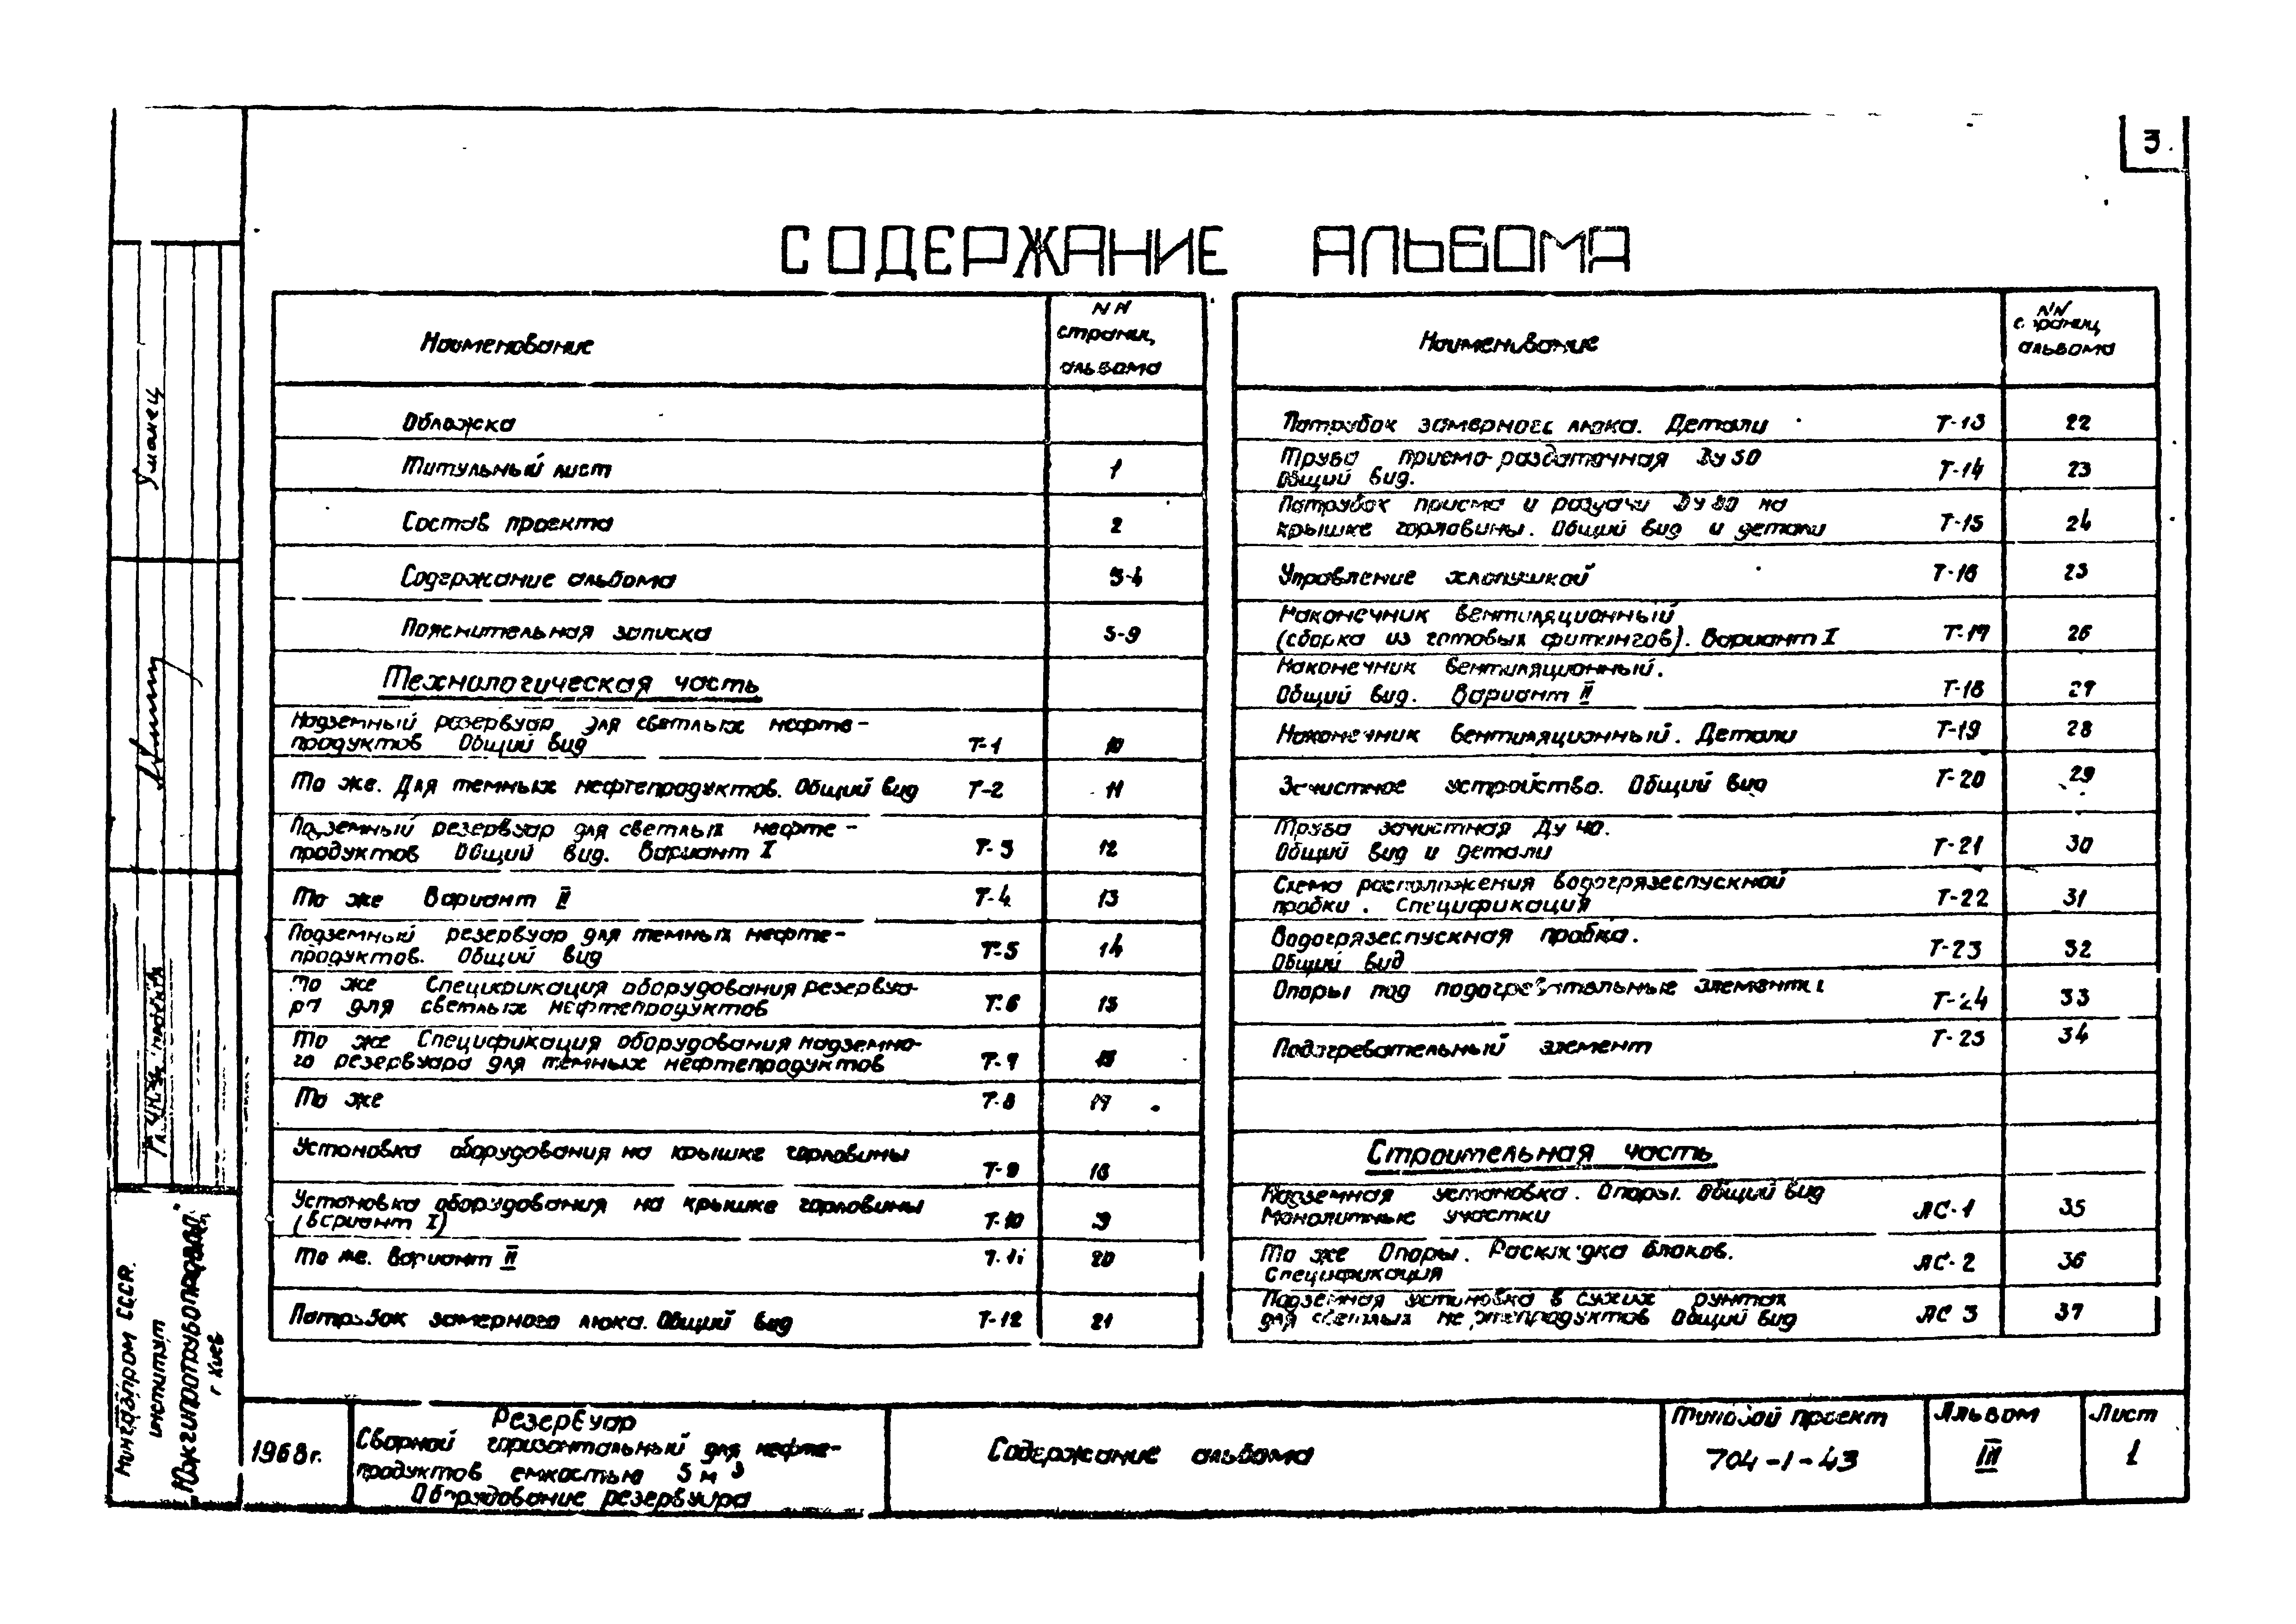 3
СОДЕРЖАНИЕ АЛЬБОМА
Наименование
NN
страниц
альбома
Обложка
Титульный лист 1
Состав проекта 2
Содержание альбома 3-4
Пояснительная записка 5-9
Технологическая часть
Надземный резервуар для светлых нефте-
продуктов Общий вид Т-1 10
То же. Для темных нефтепродуктов. Общий вид Т-2 11
Подземный резервуар для светлых нефте-
продуктов Общий вид. Вариант I Т-3 12
То же Вариант II Т-4 13
Подземный резервуар для темных нефте-
продуктов. Общий вид Т-5 14
То же Спецификация оборудования резервуа-
ра для светлых нефтепродуктов Т-6 15
То же Спецификация оборудования надземно-
го резервуара для темных нефтепродуктов Т-7 16
То же Т-8 17
Установка оборудования на крышке горловины
Т-9 18
Установка оборудования на крышке горловины
(Вариант I) Т-10 19
То же. Вариант II Т-11 20
Патрубок замерного люка. Общий вид Т-12 21
Наименование
NN
страниц
альбома
Патрубок замерного люка. Детали Т-13 22
Труба приемо-раздаточная Ду 80
Общий вид. Т-14 23
Патрубок приема и раздачи Ду 80 на
крышке горловины. Общий вид и детали Т-15 24
Управление хлопушкой Т-16 25
Наконечник вентиляционный
(сборка из готовых фитингов). Вариант I Т-17 26
Наконечник вентиляционный.
Общий вид. Вариант II Т-18 27
Наконечник вентиляционный. Детали Т-19 28
Зачистное устройство. Общий вид Т-20 29
Труба зачистная Ду 40.
Общий вид и детали Т-21 30
Схема расположения водогрязеспускной
пробки. Спецификация Т-22 31
Водогрязеспускная пробка.
Общий вид Т-23 32
Опоры под подогревательные элементы Т-24 33
Подогревательный элемент Т-25 34
Строительная часть
Надземная установка. Опоры. Общий вид
Монолитные участки АС-1 35
То же Опоры. Раскладка блоков.
Спецификация АС-2 36
Подземная установка в сухих грунтах
для светлых нефтепродуктов Общий вид АС 3 37
Уманец
Мингазпром СССР.
институт
"Южгипротрубопровод"
г Киев
1968г.
Резервуар
Сварной горизонтальный для нефте-
продуктов емкостью 5 м³
Оборудование резервуара
Содержание альбома
Типовой проект
704-1-43
Альбом
III
Лист
1